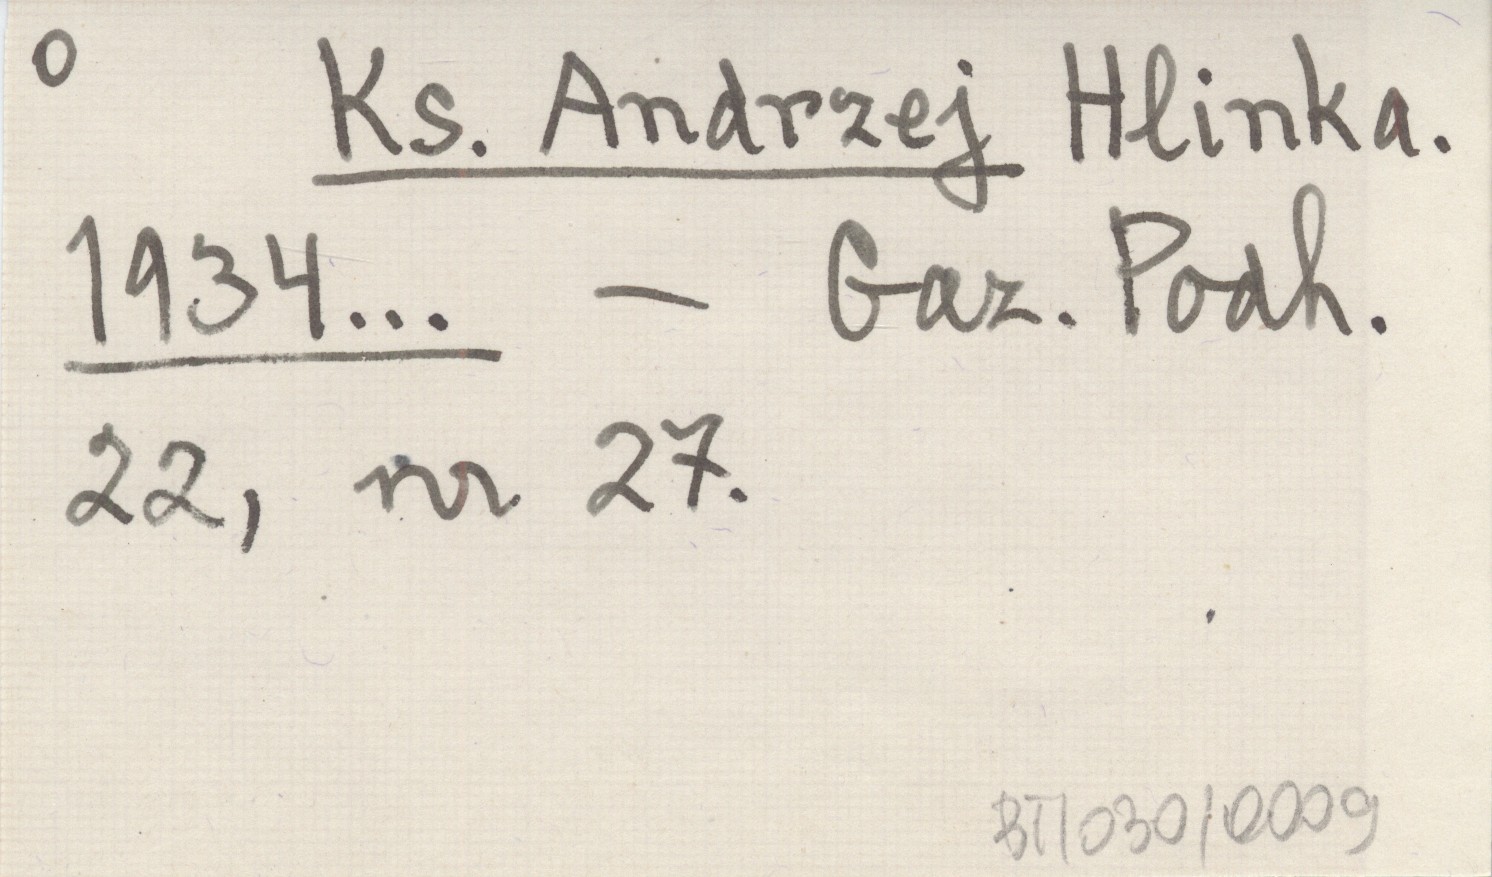 O Ks. Andrzej Hlinka.
1934... — Gaz. Podh.
22, nr 27.
BT/030/0009